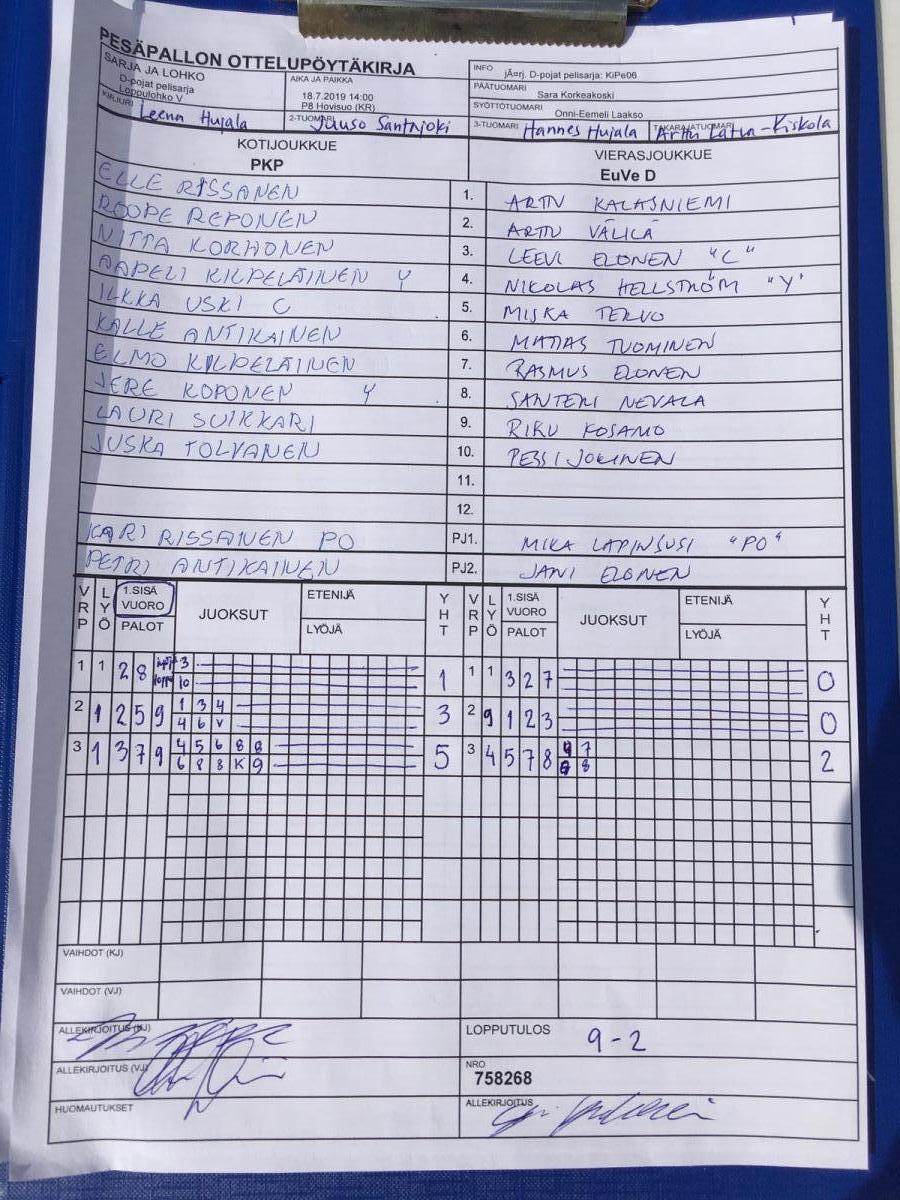 PESÄPALLON OTTELUPÖYTÄKIRJA
SARJA JA LOHKO
D-pojat pelisarja
Loppulohko V
AIKA JA PAIKKA
18.7.2019 14:00
P8 Hovisuo (KR)
INFO
jÃ¤rj. D-pojat pelisarja: KiPe06
PÄÄTUOMARI
Sara Korkeakoski
SYÖTTÖTUOMARI
Onni-Eemeli Laakso
KIRJURI Leena Hujala
2-TUOMARI Juuso Santajoki
3-TUOMARI Hannes Hujala
TAKARAJATUOMARI Arttu Latva-Kiskola
KOTIJOUKKUE
PKP
VIERASJOUKKUE
EuVe D
ELLE RISSANEN 1. ARTTU KALASNIEMI
ROOPE REPONEN 2. ARTTU VÄLILÄ
NITTA KORHONEN 3. LEEVI ELONEN "C"
AAPELI KILPELÄINEN Y 4. NIKOLAS HELLSTRÖM "Y"
ILKKA USKI C 5. MISKA TERVO
KALLE ANTIKAINEN 6. MATIAS TUOMINEN
ELMO KILPELÄINEN 7. RASMUS ELONEN
JERE KOPONEN Y 8. SANTERI NEVALA
LAURI SUIKKARI 9. RIKU KOSAMO
JUSKA TOLVANEN 10. PESSI JOKINEN
11.
12.
KARI RISSANEN PO PJ1. MIKA LAPINSUSI "PO"
PETRI ANTIKAINEN PJ2. JANI ELONEN
VRP LYÖ 1.SISÄ VUORO PALOT JUOKSUT ETENIJÄ LYÖJÄ YHT VRP LYÖ 1.SISÄ VUORO PALOT JUOKSUT ETENIJÄ LYÖJÄ YHT
1 1 2 8 3 1 1 1 3 2 7 0
10
2 1 2 5 9 1 3 4 3 2 9 1 2 3 0
4 6 V
3 1 3 7 9 4 5 6 8 8 5 3 4 5 7 8 4 7 2
6 8 8 K 9 8
VAIHDOT (KJ)
VAIHDOT (VJ)
ALLEKIRJOITUS (KJ)
LOPPUTULOS
9-2
ALLEKIRJOITUS (VJ)
NRO
758268
HUOMAUTUKSET
ALLEKIRJOITUS